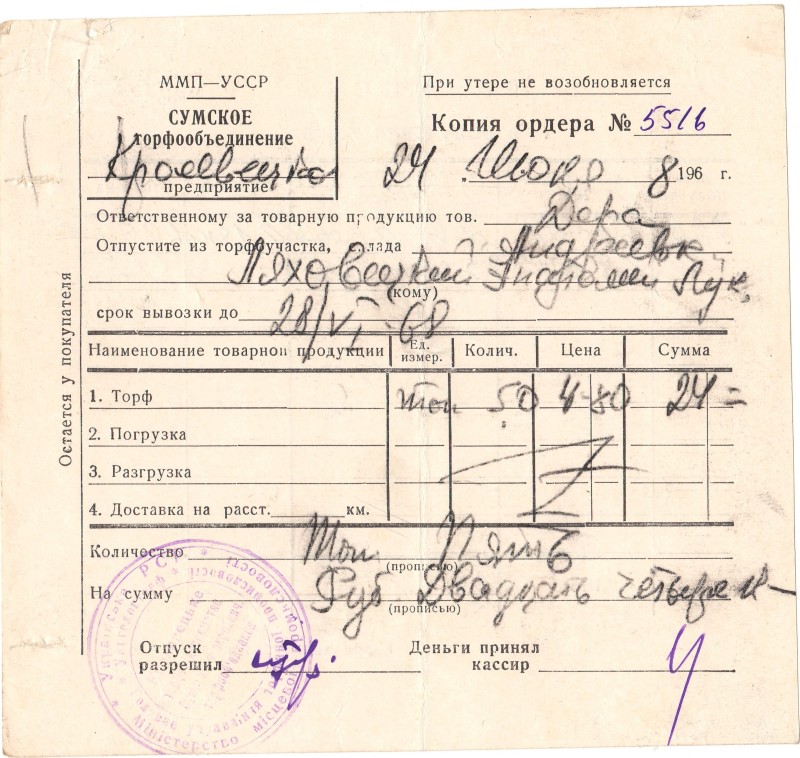 ММП—УССР
При утере не возобновляется
СУМСКОЕ
торфообъединение
Копия ордера № 5516
предприятие
24 Июня 8 196 г.
Ответственному за товарную продукцию тов. Дера
Отпустите из торфучастка, склада
Ляховецкий Лук.
(кому)
срок вывозки до 28/VI-68
Остается у покупателя
Наименование товарной продукции Ед. измер. Колич. Цена Сумма
1. Торф тон 5.0 4-80 24=
2. Погрузка
3. Разгрузка
4. Доставка на расст. км.
Количество Тон Пять
(прописью)
На сумму Руб Двадцать четыре к—
(прописью)
Отпуск разрешил
Деньги принял кассир
Українська РСР
Міністерство місцевої промисловості